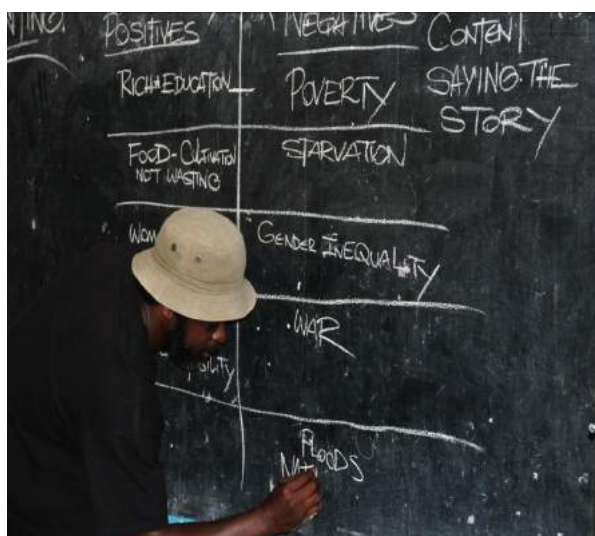 POSITIVES
NEGATIVES
CONTENT
SAYING THE
STORY
RICH-EDUCATION
POVERTY
FOOD-CULTIVATION
NOT WASTING
STARVATION
GENDER INEQUALITY
WAR
FLOODS